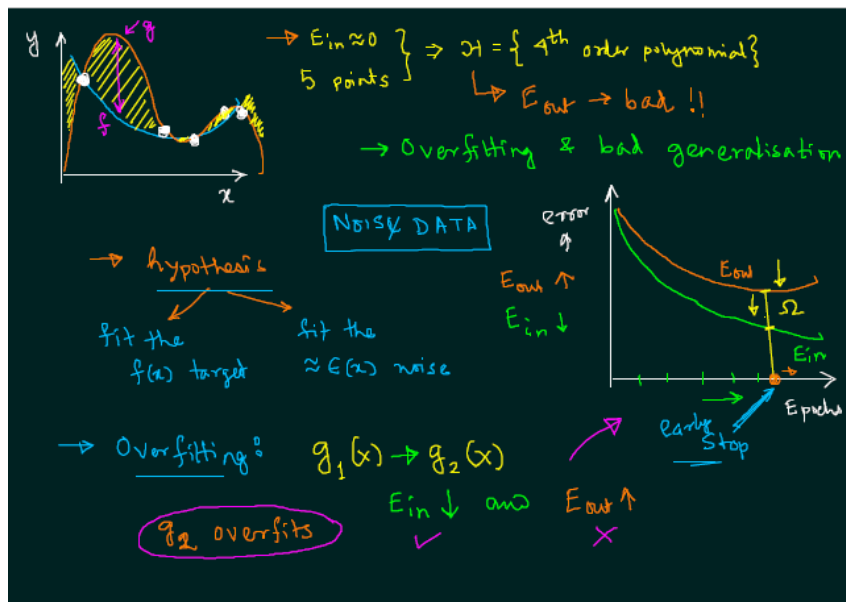 y
g
f
x
→ Ein ≈ 0
5 points
} ⇒ H = { 4th order polynomial }
↳ Eout → bad !!
→ Overfitting & bad generalisation
NOISY DATA
→ hypothesis
fit the
f(x) target
fit the
≈ ε(x) noise
error
Eout ↑
Ein ↓
Eout
Ω
Ein
Epochs
early
Stop
→ Overfitting: g1(x) → g2(x)
Ein ↓ and Eout ↑
g2 overfits ✓ ✗